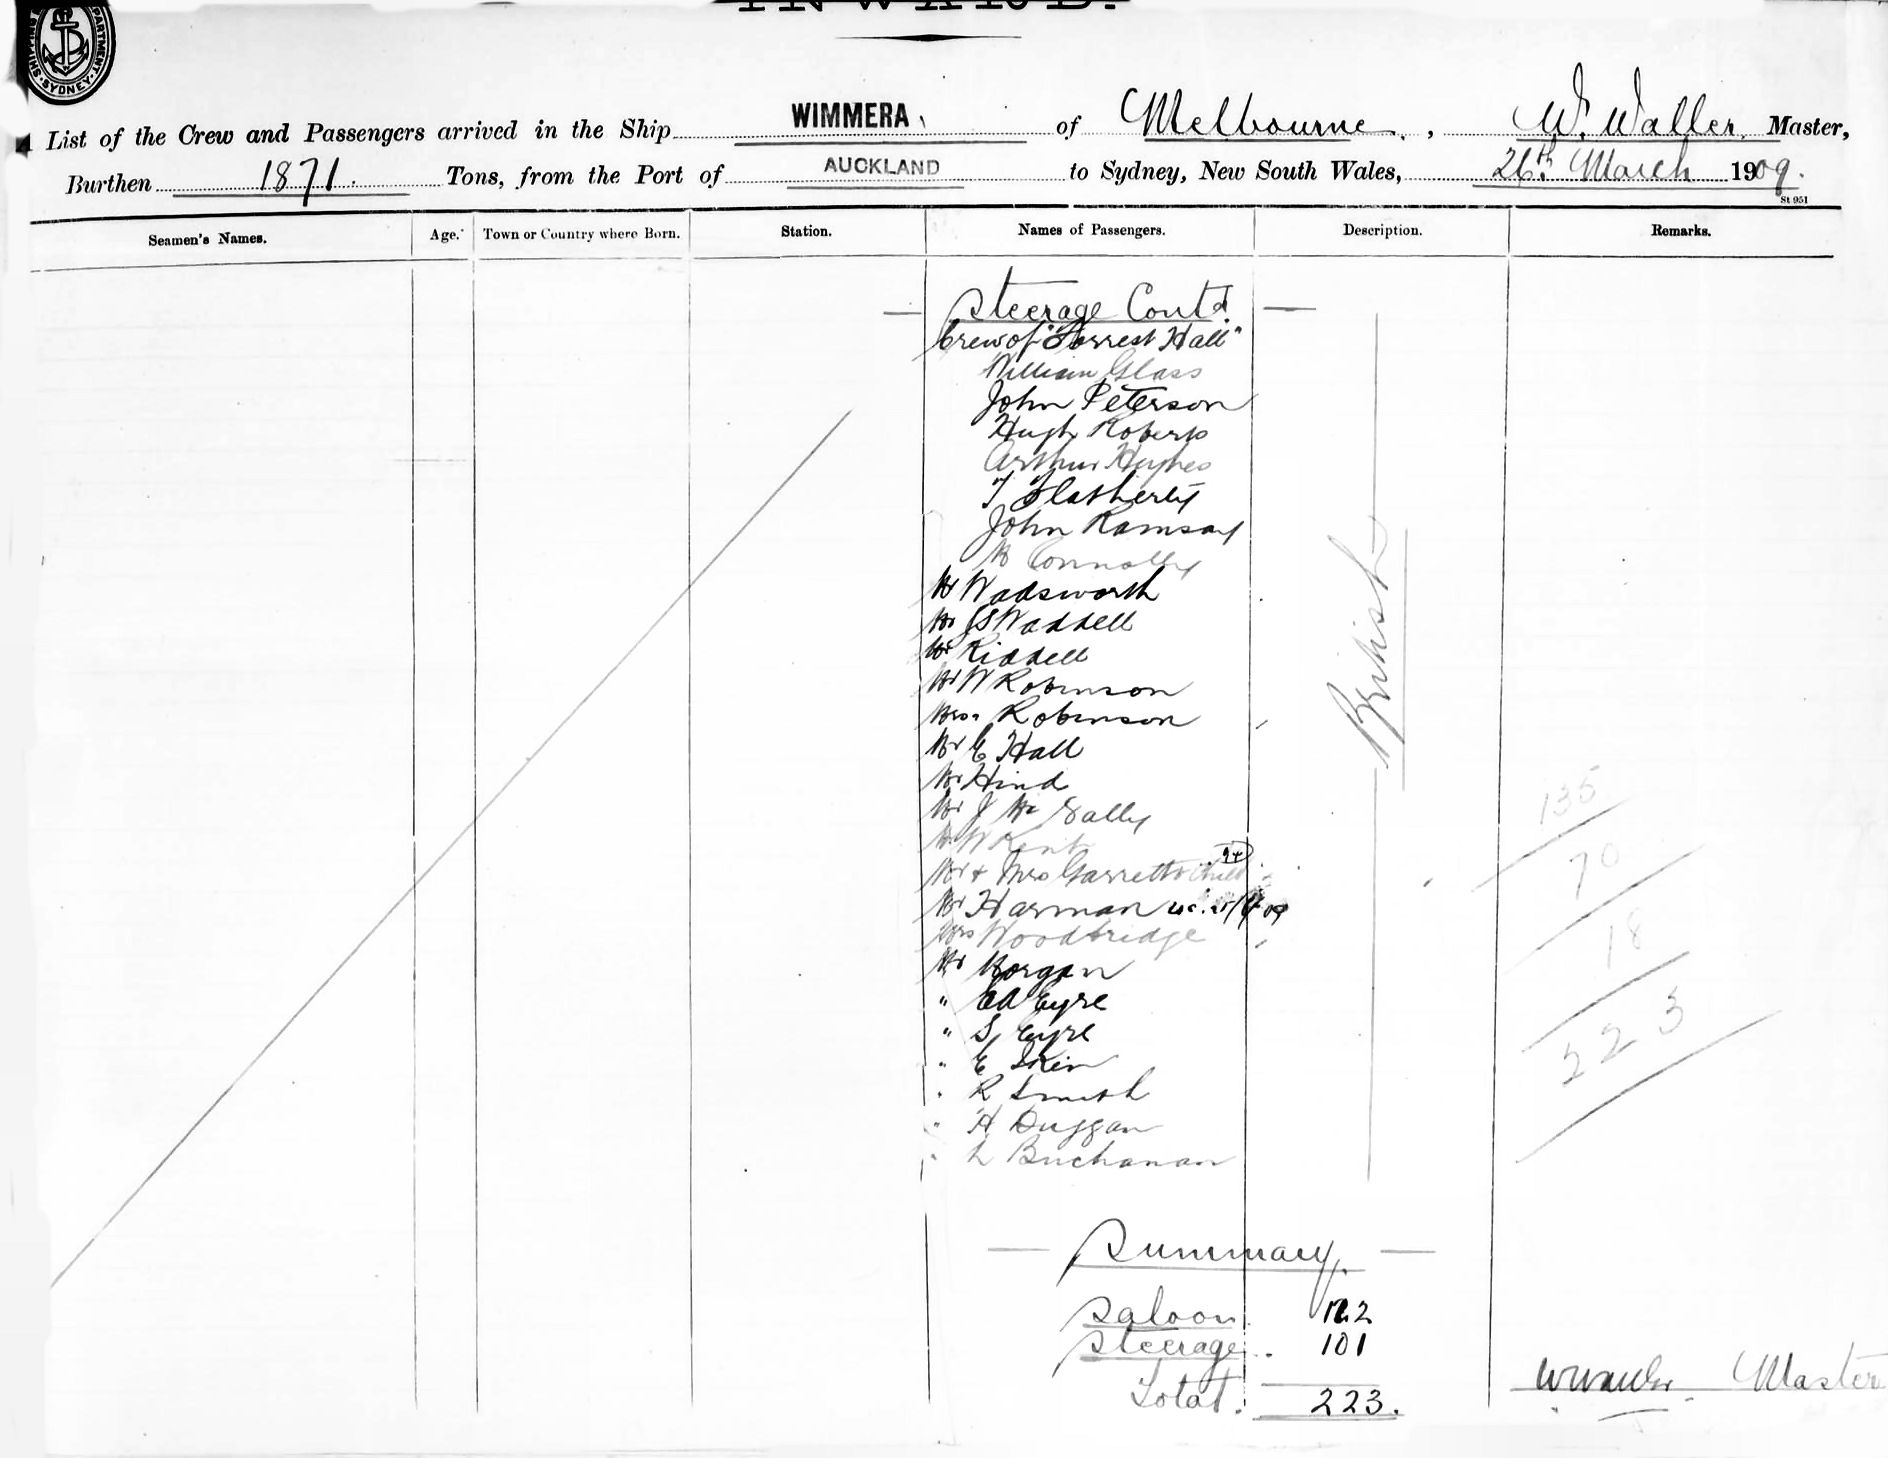 INWARD.
SHIPPING DEPARTMENT. SYDNEY.
List of the Crew and Passengers arrived in the Ship WIMMERA, of Melbourne, W. Waller. Master,
Burthen 1871. Tons, from the Port of AUCKLAND to Sydney, New South Wales, 26th March 1909.
St 951
Seamen's Names. Age. Town or Country where Born. Station. Names of Passengers. Description. Remarks.
— Steerage Contd. —
Crew of "Forrest Hall"
William Glass
John Peterson
Hugh Roberts
Arthur Hughes
T Flatherty
John Ramsay
M Connolly
Mr Wadsworth
Mr JS Waddell
Mr Riddell
Mr W Robinson
Mrs. Robinson
Mr E Hall
Mr Hind
Mr J Mc Sally
Mr W Kent
Mr & Mrs Garrett & Child
Mr Harman
Mrs Woodbridge
Mr Morgan
" Ed Eyre
" S Eyre
" E Skin
" R Smith
" H Duggan
" L Buchanan
British
135
70
18
223
— Summary. —
Saloon. 122
Steerage. 101
Total. 223.
W Waller Master